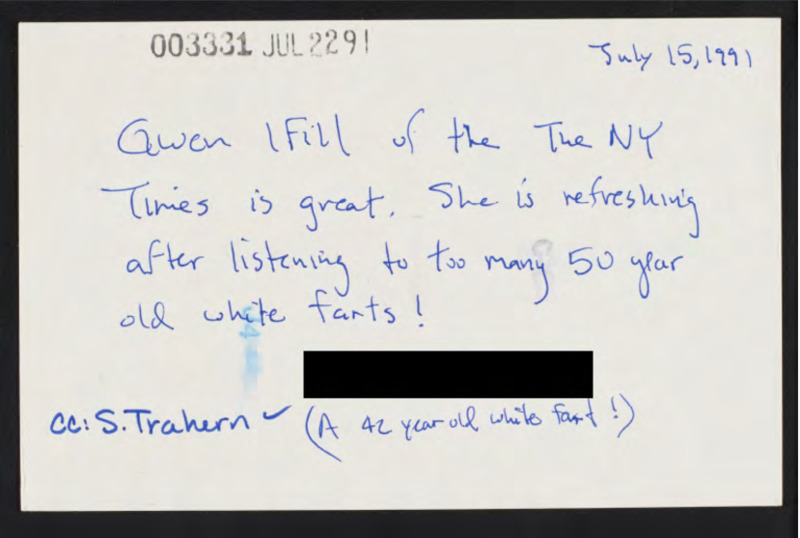 003331 JUL 22 91
July 15, 1991
Gwen IFill of the The NY
Times is great. She is refreshing
after listening to too many 50 year
old white farts!
cc: S. Trahern ✓ (A 42 year old white fart!)